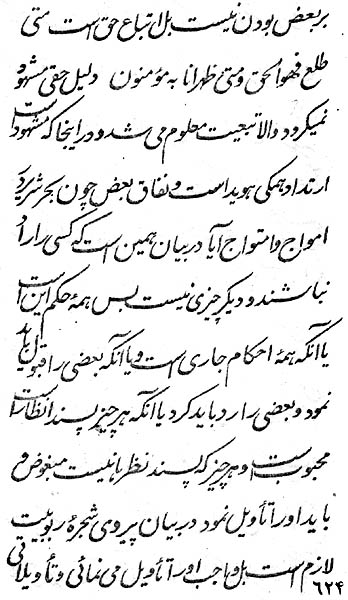 بر بعض بودن نیست بل اتباع حق است متی
طلع فهو الحق و متی ظهر انا به مؤمنون دلیل حقی مشهود
نمیگردد والا تبعیت معلوم می شد و در اینجا که مشهود است
ارتداد همکی هویدا است و نفاق بعض چون بحر شریر
امواج و امتواج آیا در بیان همین است که کسی را راد
نباشند و دیگر چیزی نیست بس همهٔ حکم این است
یا آنکه همهٔ احکام جاری است و یا آنکه بعضی را قبول باید
نمود و بعضی را رد باید کرد یا آنکه هر چیز پسند انظار است
محبوب است و هر چیز که پسند نظرها نیست مبغوض و
باید او را تأویل نمود در بیان پیروی شجرهٔ ربوبیت
لازم است بل واجب او را تأویل می نمائی و تأویلاتی
۶۲۴